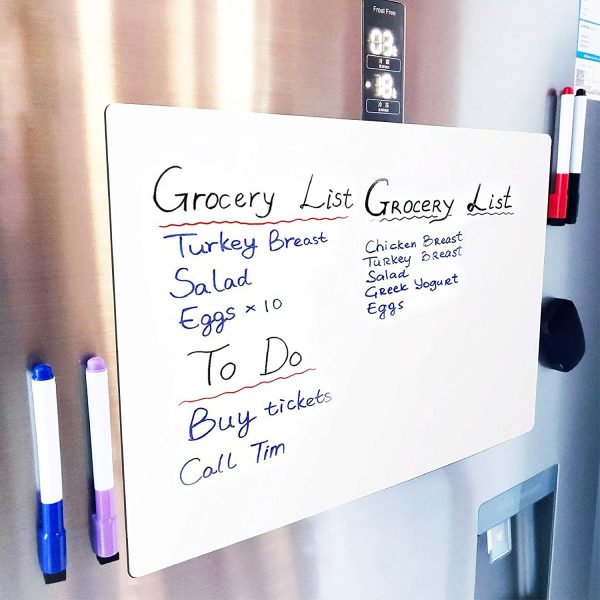 Frost Free
Grocery List
Turkey Breast
Salad
Eggs × 10
To Do
Buy tickets
Call Tim
Grocery List
Chicken Breast
Turkey Breast
Salad
Greek Yogurt
Eggs